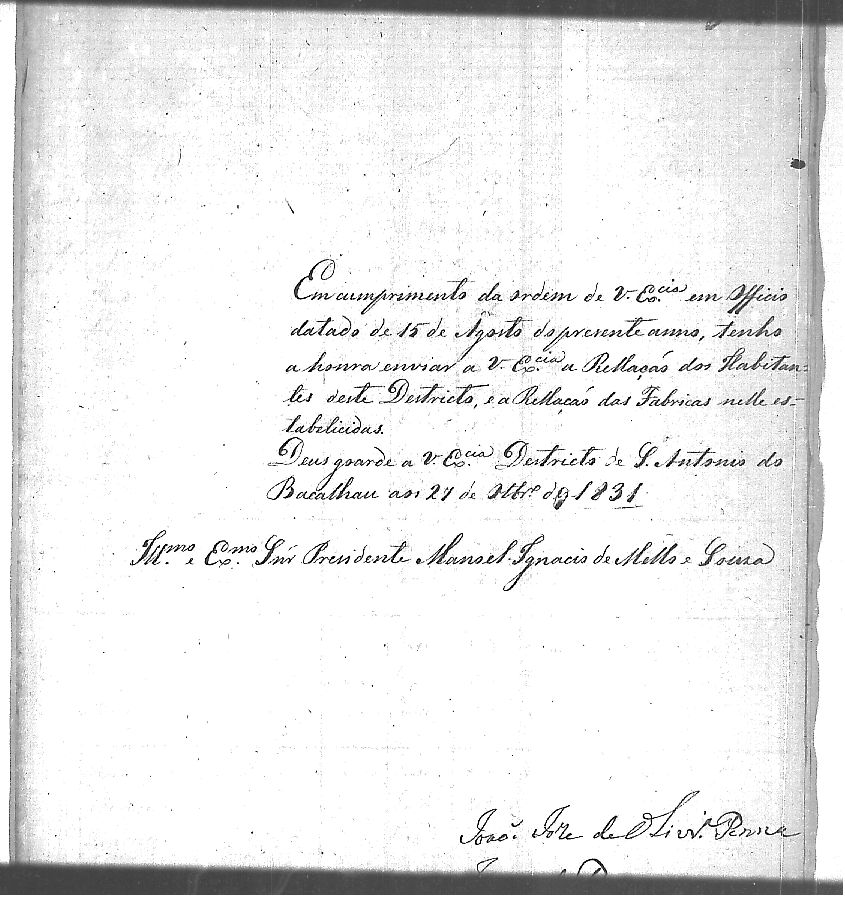 Em cumprimento da ordem de V. Ex.cia em Officio
datado de 15 de Agosto do presente anno, tenho
a honra enviar a V. Ex.cia a Rellaçaõ dos Habitan=
tes deste Destricto, e a Rellacaõ das Fabricas nelle es-
tabelicidas.
Deus goarde a V. Ex.cia Destricto de S. Antonio do
Bacalhau aos 27 de de 1831
Ill.mo e Ex.mo Snr̃ Presidente Manoel Ignacio de Mello e Souza
Joaõ Joze de Oliv.ra Penna